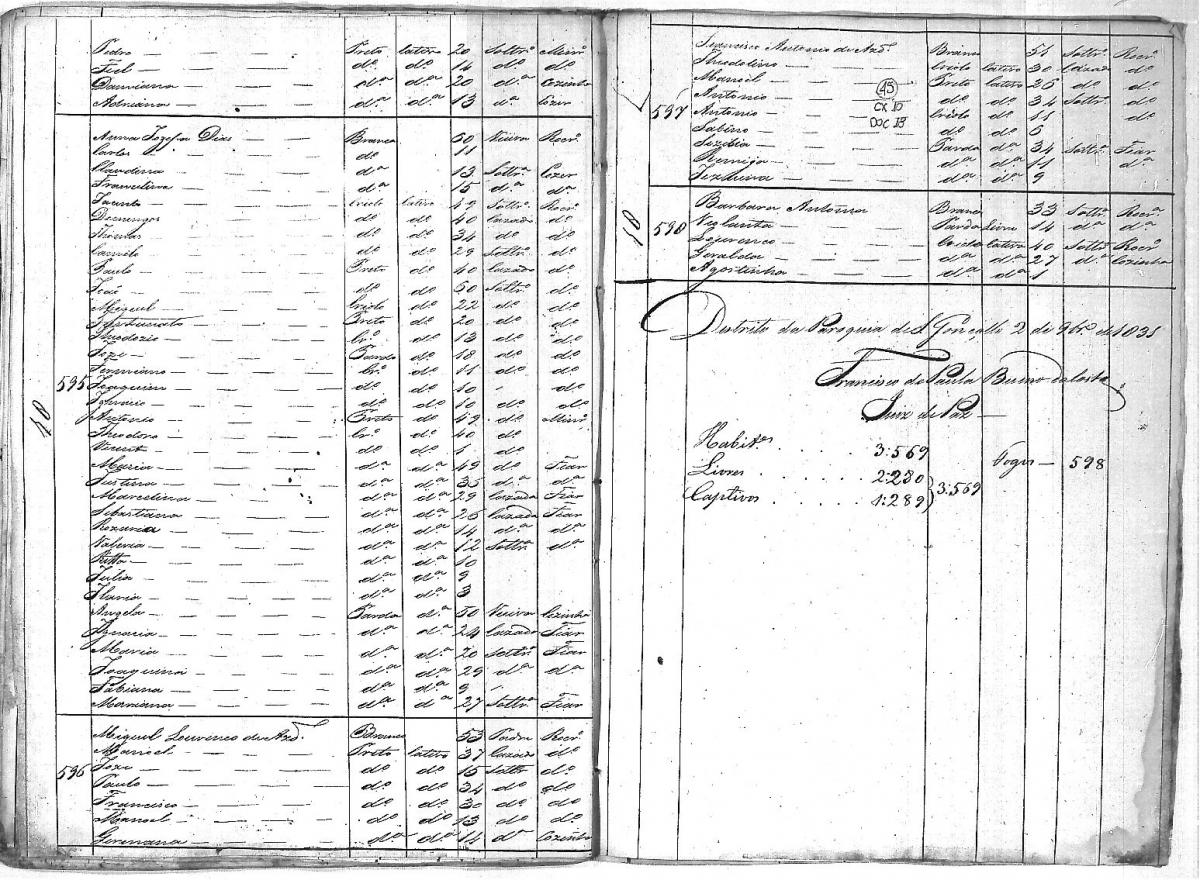 Pedro — Preto Cativo 20 Soltrº Minrº
Fiel — dº dº 14 dº dº
Damiana — dª dª 20 dª Cozinha
Adriana — dª dª 13 dª Cozer
Anna Jozefa Dias Branca 50 Viuva Rocrª
Carlos — dº 11
Claudina — dª 13 Soltrª Cozer
Francelina — dª 15 dª dª
Jacinto — Criolo Cativo 49 Soltrº Rocrº
Domingos — dº dº 40 Cazado dº
Thomas — dº dº 34 dº dº
Camilo — dº dº 29 Soltrº dº
Paulo — Preto dº 40 Cazado dº
Jozé — dº dº 50 Soltrº dº
Miguel — Criolo dº 22 dº dº
Fortunato — Preto dº 20 dº dº
Theodozio — Crº dº 13 dº dº
Joze — Pardo dº 18 dº dº
Firmiano — Crº dº 11 dº dº
595 Joaquim — dº dº 10 dº
Ignacio — dº dº 10 dº dº
10
Antonio — Preto dº 49 dº Minrº
Theodoro — Crº dº 40 dº
Vicente — dº dº 1 dº
Maria — dª dª 49 dº Fiar
Justina — dª dª 35 dª dª
Marceliana — dª dª 29 Cazada Fiar
Sebastiana — dª dª 26 Cazada Fiar
Rozaria — dª dª 14 dª dª
Valeria — dª dª 12 Soltrª dª
Ritta — dª dª 10
Julia — dª dª 9
Ilaria — dª dª 3
Angela — Parda dª 50 Viuva Cozinha
Ignacia — dª dª 24 Cazada Fiar
Maria — dª dª 20 Soltrª Fiar
Joaquina — dª dª 29 dª dª
Fabiana — dª dª 9
Mariana — dª dª 27 Soltrª Fiar
Miguel Lourenco de Azdº Branco 53 Padre Rocrº
Manoel — Preto Cativo 37 Cazado dº
596 Joze — dº dº 15 Soltrº dº
Paulo — dº dº 34 dº dº
Francisco — dº dº 30 dº dº
Manoel — dº dº 13 dº dº
Germana — dª dª 14 dª Cozinha
Francisco Antonio de Azdº Branco 51 Soltrº Rocrº
Theodolino — Criolo Cativo 30 Cazado dº
Manoel — Preto Cativo 26 dº dº
45
Antonio — dº dº 34 Soltrº dº
CX 10
597 Antonio — Criolo dº 11 dº
DOC 18
Sabino — dº dº 6
Parda dª 34 Soltrª Fiar
Remija — dª dª 11 dª
dª dª 9
Barbara Antonia Branca 33 Soltrª Rocrª
10
598 Violanta — Parda Livre 14 dª dª
Lourenco — Criolo Cativo 40 Soltrº Rocrº
Geralda — dª dª 27 dª Cozinha
Agostinha — dª dª 1
Destrito da Paroquia de S Gonçallo 2 de 9brº de 1831
Francisco de Paula Bueno da Costa
Juiz de Paz —
Habites . . . 3:569
Fogos — 598
Livres . . . . 2:280
3:569
Captivos . . . . 1:289